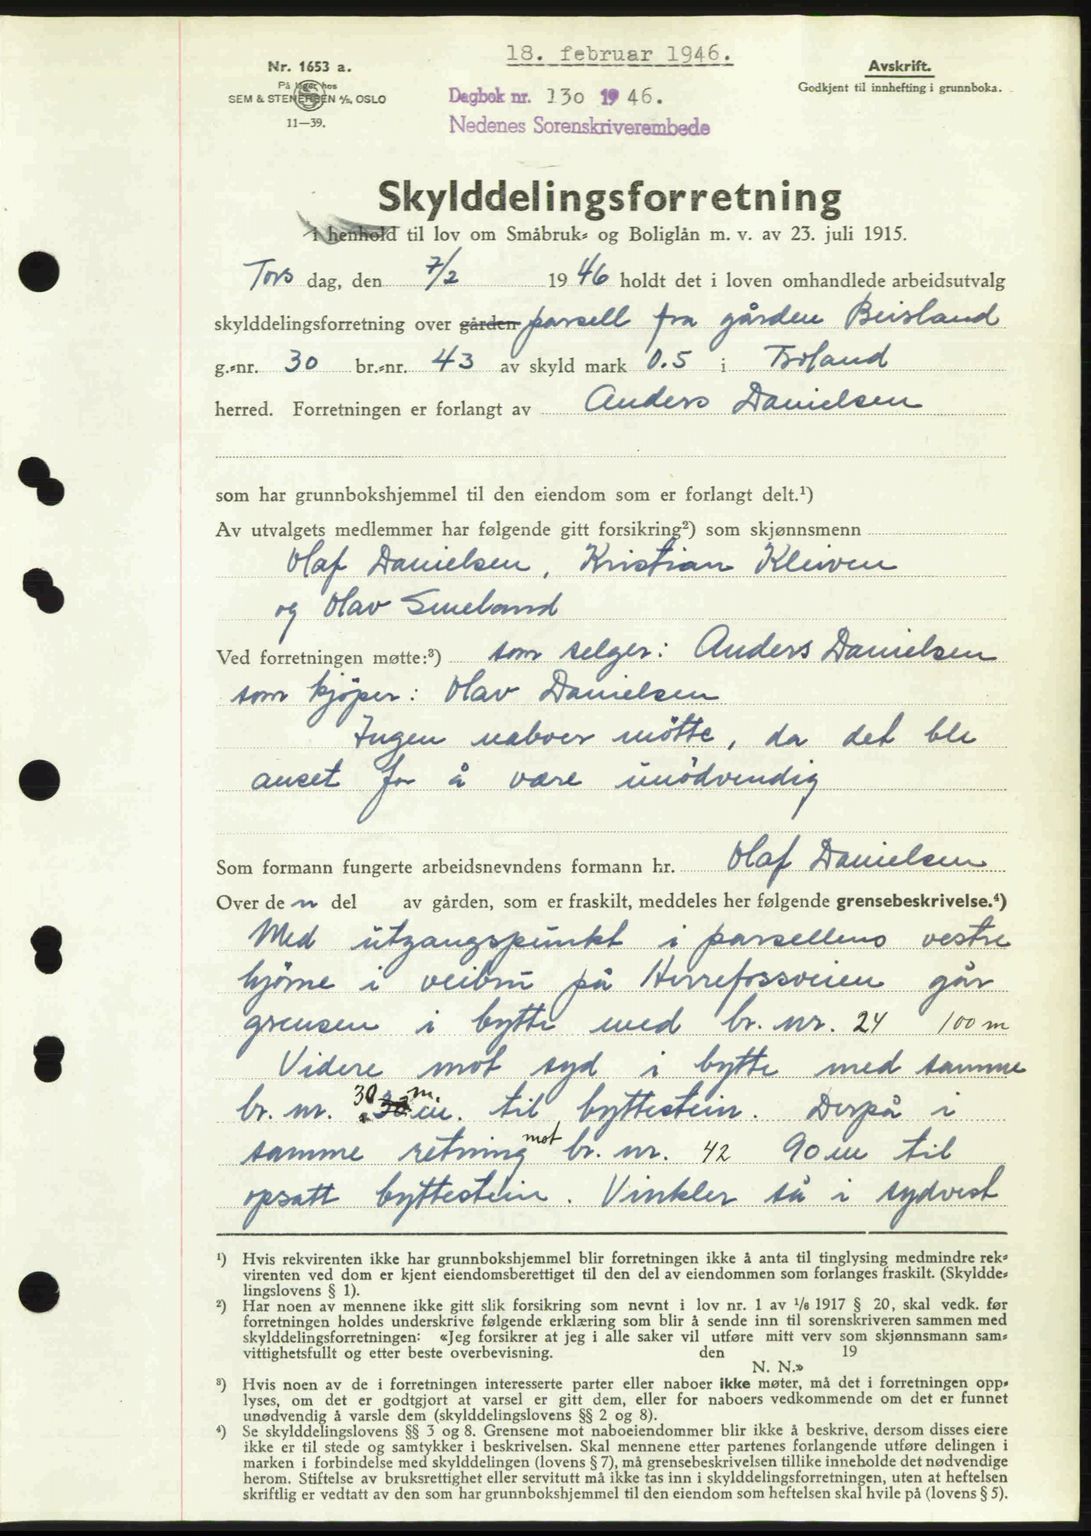 18. februar 1946.
Nr. 1653 a.
På lager hos
SEM & STENERSEN A/S, OSLO
11—39.
Dagbok nr. 130 1946.
Nedenes Sorenskriverembede
Avskrift.
Godkjent til innhefting i grunnboka.
Skylddelingsforretning
i henhold til lov om Småbruk- og Boliglån m. v. av 23. juli 1915.
Tors dag, den 7/2 1946 holdt det i loven omhandlede arbeidsutvalg
skylddelingsforretning over gården parsell fra gården Beisland
g.-nr. 30 br.-nr. 43 av skyld mark 0.5 i Froland
herred. Forretningen er forlangt av Anders Danielsen
som har grunnbokshjemmel til den eiendom som er forlangt delt.¹)
Av utvalgets medlemmer har følgende gitt forsikring²) som skjønnsmenn
Olaf Danielsen, Kristian Kleiven
og Olav Smeland
Ved forretningen møtte:³) som selger: Anders Danielsen
som kjöper: Olav Danielsen
Ingen naboer mötte, da det ble
anset for å være unödvendig
Som formann fungerte arbeidsnevndens formann hr. Olaf Danielsen
Over de n del av gården, som er fraskilt, meddeles her følgende grensebeskrivelse.⁴)
Med utgangspunkt i parsellens vestre
hjörne i veibru på Herrefossveien går
grensen i bytte med br. nr. 24 100 m
Videre mot syd i bytte med samme
br. nr. 30 m. til byttestein. Derpå i
samme retning mot br. nr. 42 90 m til
opsatt byttestein. Vinkler så i sydvest
¹) Hvis rekvirenten ikke har grunnbokshjemmel blir forretningen ikke å anta til tinglysing medmindre rek-
virenten ved dom er kjent eiendomsberettiget til den del av eiendommen som forlanges fraskilt. (Skyldde-
lingslovens § 1).
²) Har noen av mennene ikke gitt slik forsikring som nevnt i lov nr. 1 av 1/6 1917 § 20, skal vedk. før
forretningen holdes underskrive følgende erklæring som blir å sende inn til sorenskriveren sammen med
skylddelingsforretningen: «Jeg forsikrer at jeg i alle saker vil utføre mitt verv som skjønnsmann sam-
vittighetsfullt og etter beste overbevisning. den 19
N. N.»
³) Hvis noen av de i forretningen interesserte parter eller naboer ikke møter, må det i forretningen opp-
lyses, om det er godtgjort at varsel er gitt dem, eller for naboers vedkommende om det er funnet
unødvendig å varsle dem (skylddelingslovens §§ 2 og 8).
⁴) Se skylddelingslovens §§ 3 og 8. Grensene mot naboeiendommer blir ikke å beskrive, dersom disses eiere
ikke er til stede og samtykker i beskrivelsen. Skal mennene etter partenes forlangende utføre delingen i
marken i forbindelse med skylddelingen (lovens § 7), må grensebeskrivelsen tillike inneholde det nødvendige
herom. Stiftelse av bruksrettighet eller servitutt må ikke tas inn i skylddelingsforretningen, uten at heftelsen
skriftlig er vedtatt av den som har grunnbokshjemmel til den eiendom som heftelsen skal hvile på (lovens § 5).